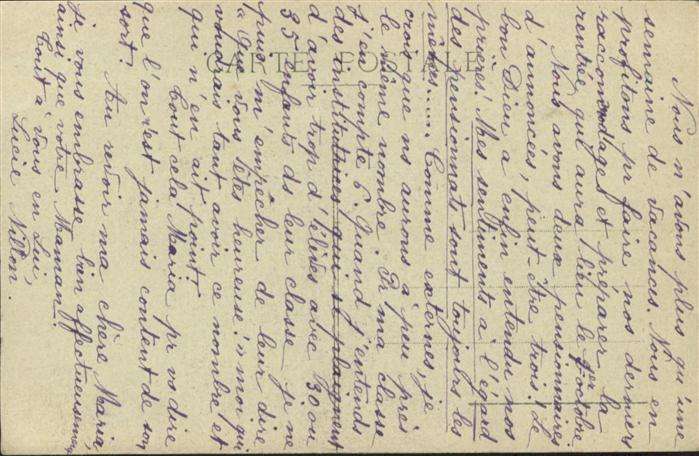 Nous n'avons plus qu'une
semaine de vacances. Nous en
profitons pr faire nos derniers
raccommodages et préparer la
rentrée qui aura lieu le 1er octobre
Nous avons deux pensionnaires
d'annoncés, peut-être trois! Le
bon Dieu a enfin entendu nos
prières! Mes sentiments à l'égard
des pensionnats sont toujours les
mêmes..... Comme externes, je
crois que ns aurons à peu près
le même nombre. Ds ma classe
j'en compte 6. Quand j'entends
des institutrices qui se plaignent
d'avoir trop d'élèves avec 30 ou
35 enfants ds leur classe je ne
puis m'empêcher de leur dire
"Que vous êtes heureuse!" moi qui
voudrais tant avoir ce nombre et
qui n'en ait point!
Tout cela Maria pr vs dire
que l'on n'est jamais content de son
sort!
Au revoir ma chère Maria
je vous embrasse bien affectueusement
ainsi que votre Maman.
Tout à vous en Lui,
Lucie
CARTE POSTALE